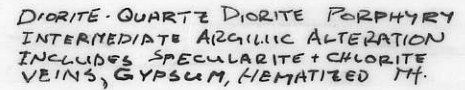 DIORITE-QUARTZ DIORITE PORPHYRY
INTERMEDIATE ARGILLIC ALTERATION
INCLUDES SPECULARITE + CHLORITE
VEINS, GYPSUM, HEMATIZED Mt.